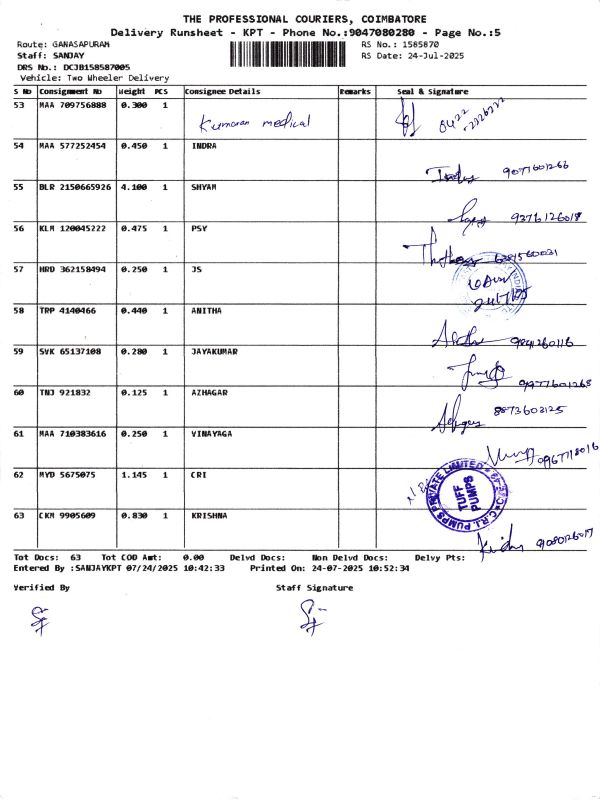 THE PROFESSIONAL COURIERS, COIMBATORE
Delivery Runsheet - KPT - Phone No.:9047080280 - Page No.:5
Route: GANASAPURAM RS No.: 1585870
Staff: SANJAY RS Date: 24-Jul-2025
DRS No.: DCJB158587005
Vehicle: Two Wheeler Delivery
S No Consignment No Weight PCS Consignee Details Remarks Seal & Signature
53 MAA 709756888 0.300 1 Kumaran medical 0422
54 MAA 577252454 0.450 1 INDRA 9077601266
55 BLR 2150665926 4.100 1 SHYAM 9376126018
56 KLM 120045222 0.475 1 PSY
57 HRD 362158494 0.250 1 JS
58 TRP 4140466 0.440 1 ANITHA 9841260116
59 SVK 65137108 0.280 1 JAYAKUMAR 9977601268
60 TNJ 921832 0.125 1 AZHAGAR 8873603125
61 MAA 710383616 0.250 1 VINAYAGA
62 MYD 5675075 1.145 1 CRI C.R.I. PUMPS PRIVATE LIMITED TUFF PUMPS
63 CKM 9905609 0.830 1 KRISHNA
Tot Docs: 63 Tot COD Amt: 0.00 Delvd Docs: Non Delvd Docs: Delvy Pts:
Entered By :SANJAYKPT 07/24/2025 10:42:33 Printed On: 24-07-2025 10:52:34
Verified By Staff Signature